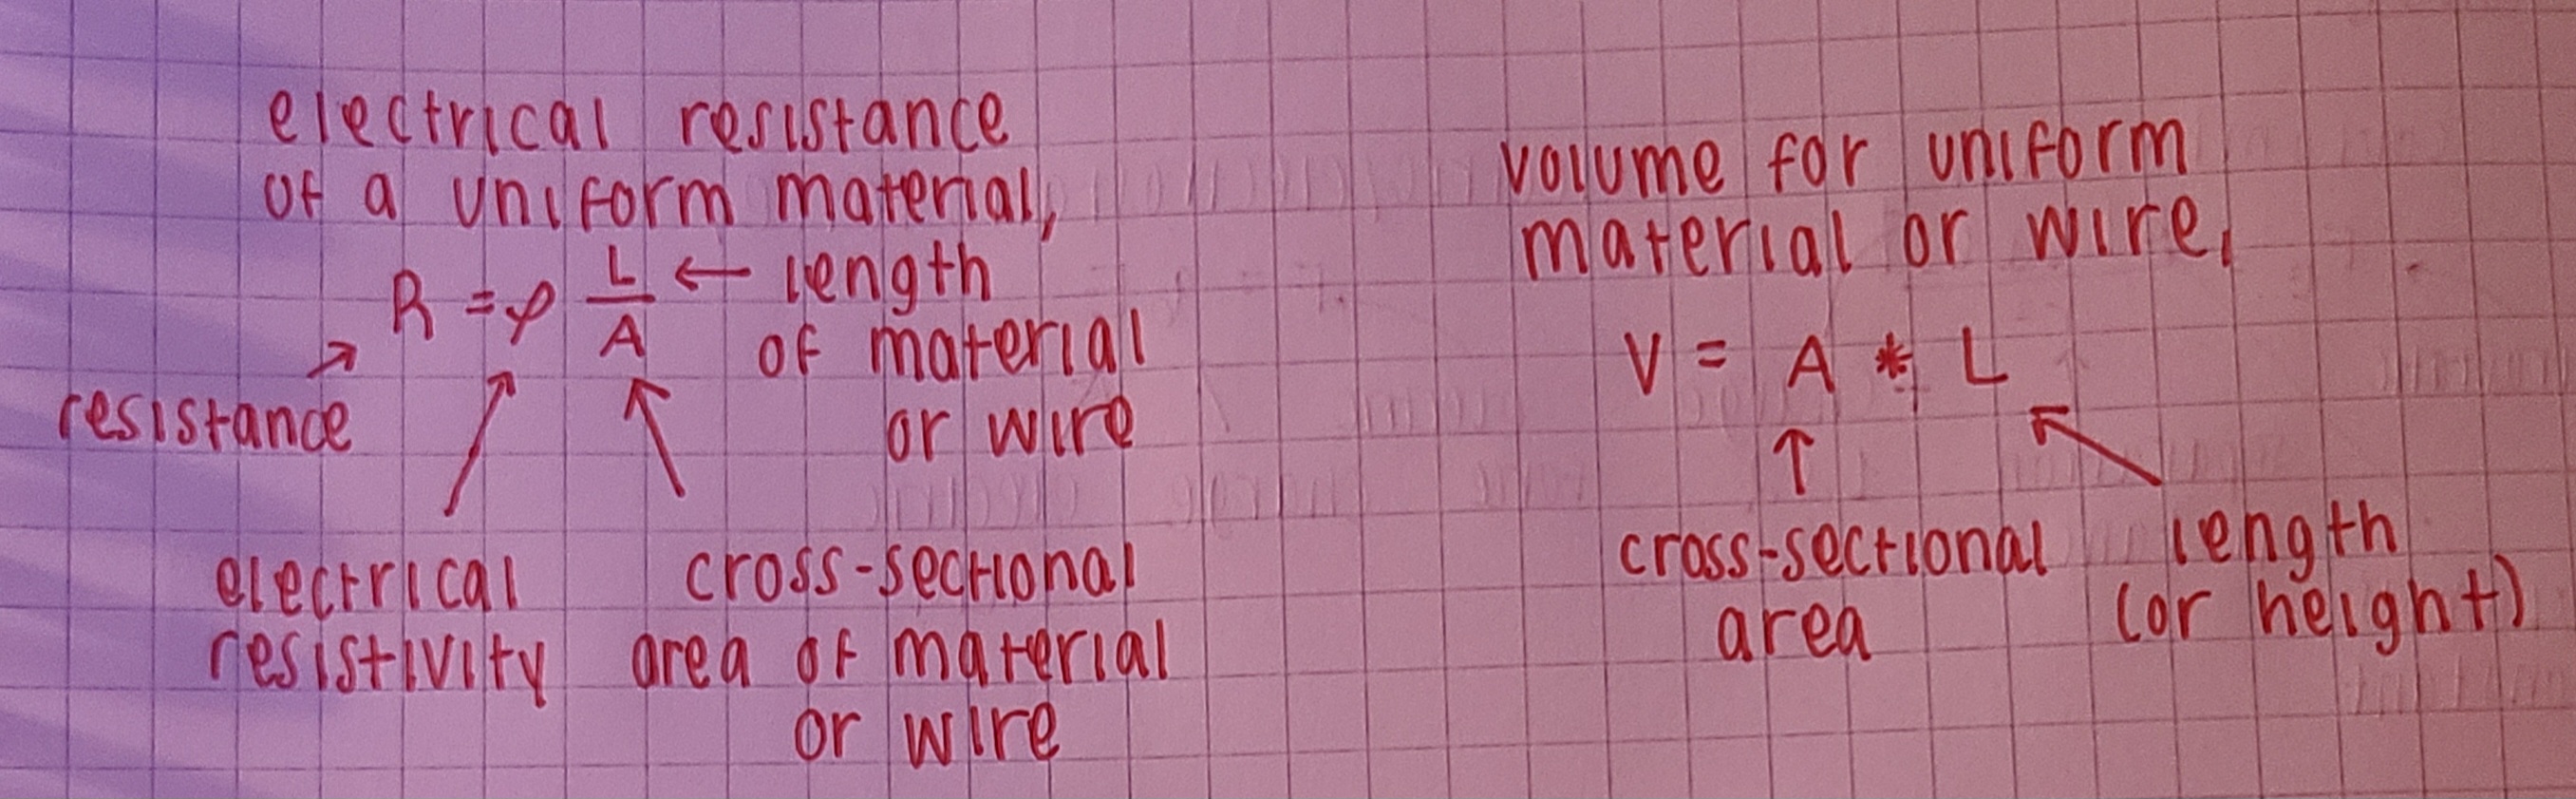 electrical resistance
of a uniform material,
R = ρ L/A ← length
of material
or wire
resistance
electrical
resistivity
cross-sectional
area of material
or wire
volume for uniform
material or wire,
V = A * L
cross-sectional
area
length
(or height)